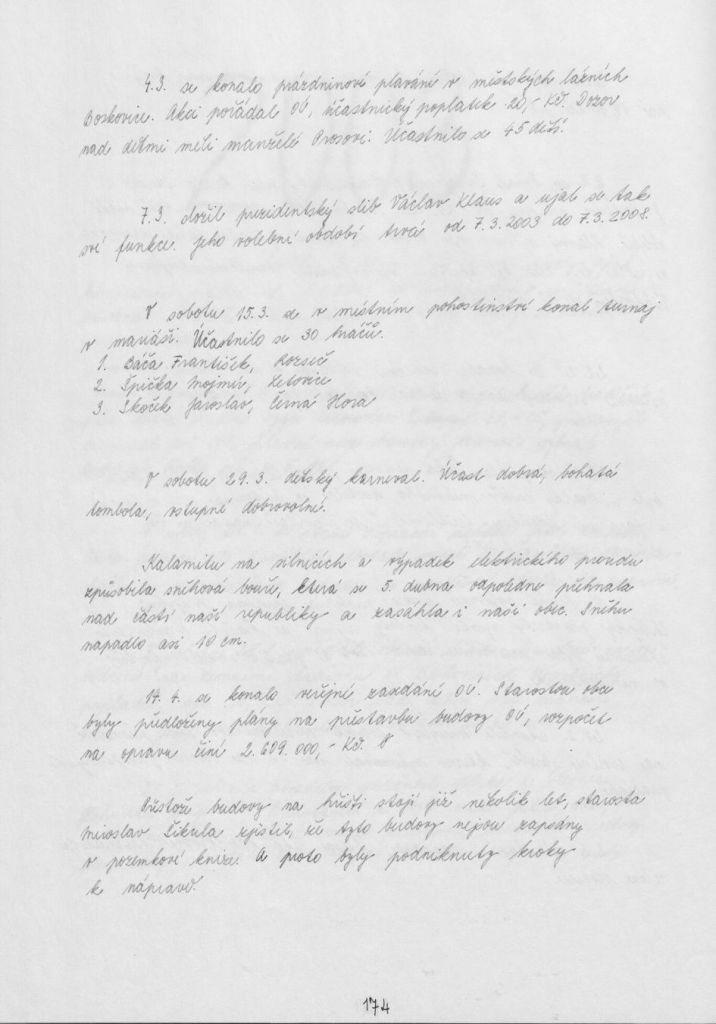 4.3. se konalo prázdninové plavání v městských lázních
Boskovice. Akci pořádal OÚ, účastnický poplatek 20,- Kč. Dozor
nad dětmi měli manželé Prosovi. Účastnilo se 45 dětí.
7.3. složil prezidentský slib Václav Klaus a ujal se tak
své funkce. Jeho volební období trvá od 7.3.2003 do 7.3.2008.
V sobotu 15.3. se v místním pohostinství konal turnaj
v mariáši. Účastnilo se 30 hráčů.
1. Báča František, Rozseč
2. Špička Mojmír, Letovice
3. Skoček Jaroslav, Černá Hora
V sobotu 29.3. dětský karneval. Účast dobrá, bohatá
tombola, vstupné dobrovolné.
Kalamitu na silnicích a výpadek elektrického proudu
způsobila sněhová bouře, která se 5. dubna odpoledne přehnala
nad částí naší republiky a zasáhla i naši obec. Sněhu
napadlo asi 10 cm.
14.4. se konalo veřejné zasedání OÚ. Starostou obce
byly předloženy plány na přístavbu budovy OÚ, rozpočet
na opravu činí 2.609.000,- Kč.
Přestože budovy na hřišti stojí již několik let, starosta
Miroslav Šikula zjistil, že tyto budovy nejsou zapsány
v pozemkové knize. A proto byly podniknuty kroky
k nápravě.
174